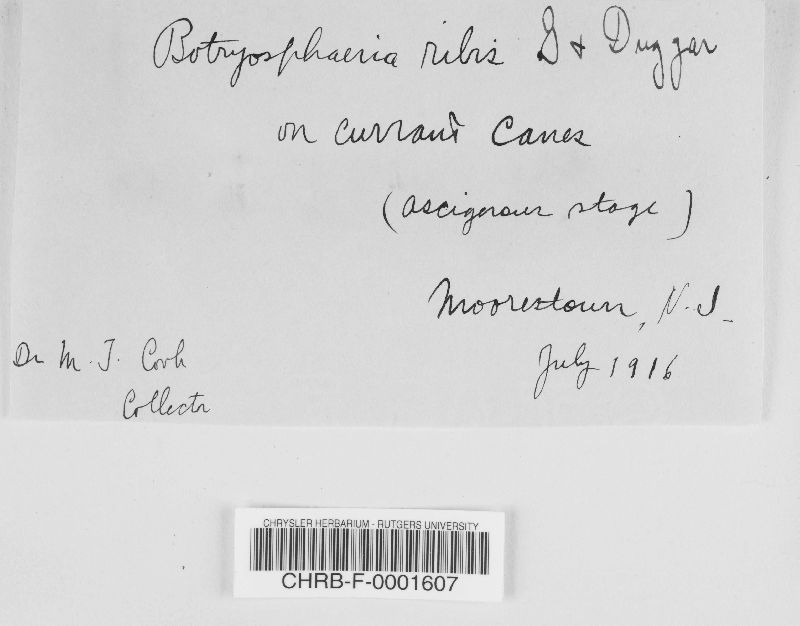 Botryosphaeria ribis G & Duggar
on currant canes
(ascigerous stage)
Moorestown, N.J.
July 1916
Dr M. T. Cook
Collectr
CHRYSLER HERBARIUM - RUTGERS UNIVERSITY
CHRB-F-0001607